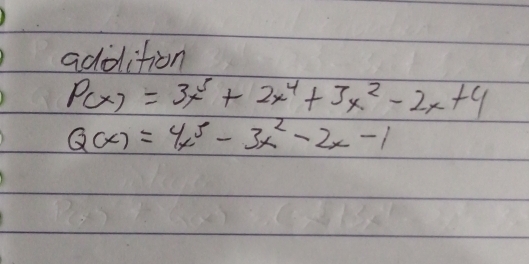 addition
P(x) = 3x⁵ + 2x⁴ + 3x² - 2x + 4
Q(x) = 4x⁵ - 3x² - 2x - 1